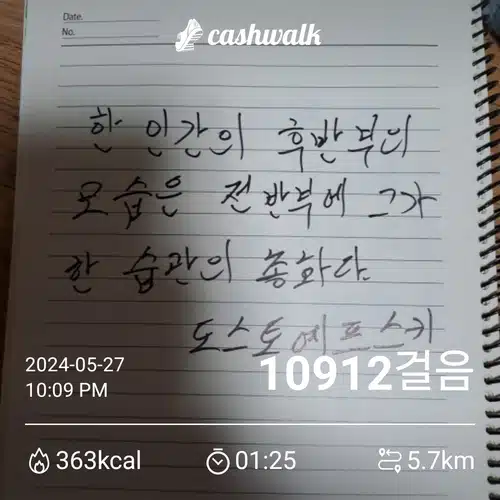 Date.
No.
cashwalk
한 인간의 후반부의
모습은 전반부에 그가
한 습관의 총화다.
도스토예프스키
2024-05-27
10:09 PM
10912걸음
363kcal
01:25
5.7km